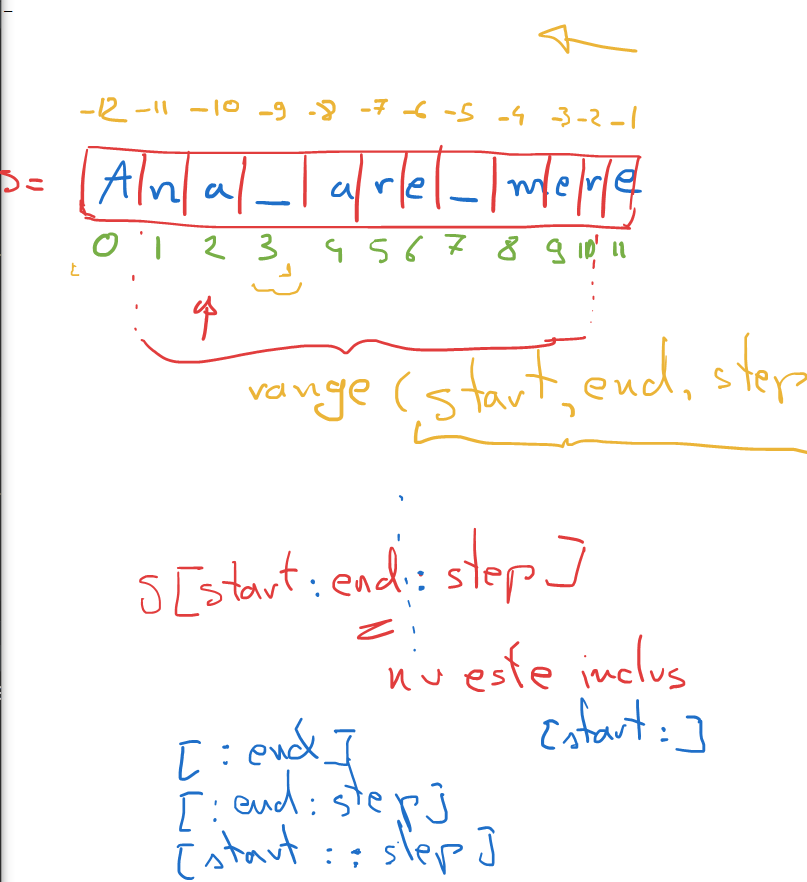 -12 -11 -10 -9 -8 -7 -6 -5 -4 -3 -2 -1
s= A n a _ a r e _ m e r e
0 1 2 3 4 5 6 7 8 9 10 11
range (start, end, step
s[start:end:step]
nu este inclus
[start:]
[:end]
[:end:step]
[start::step]